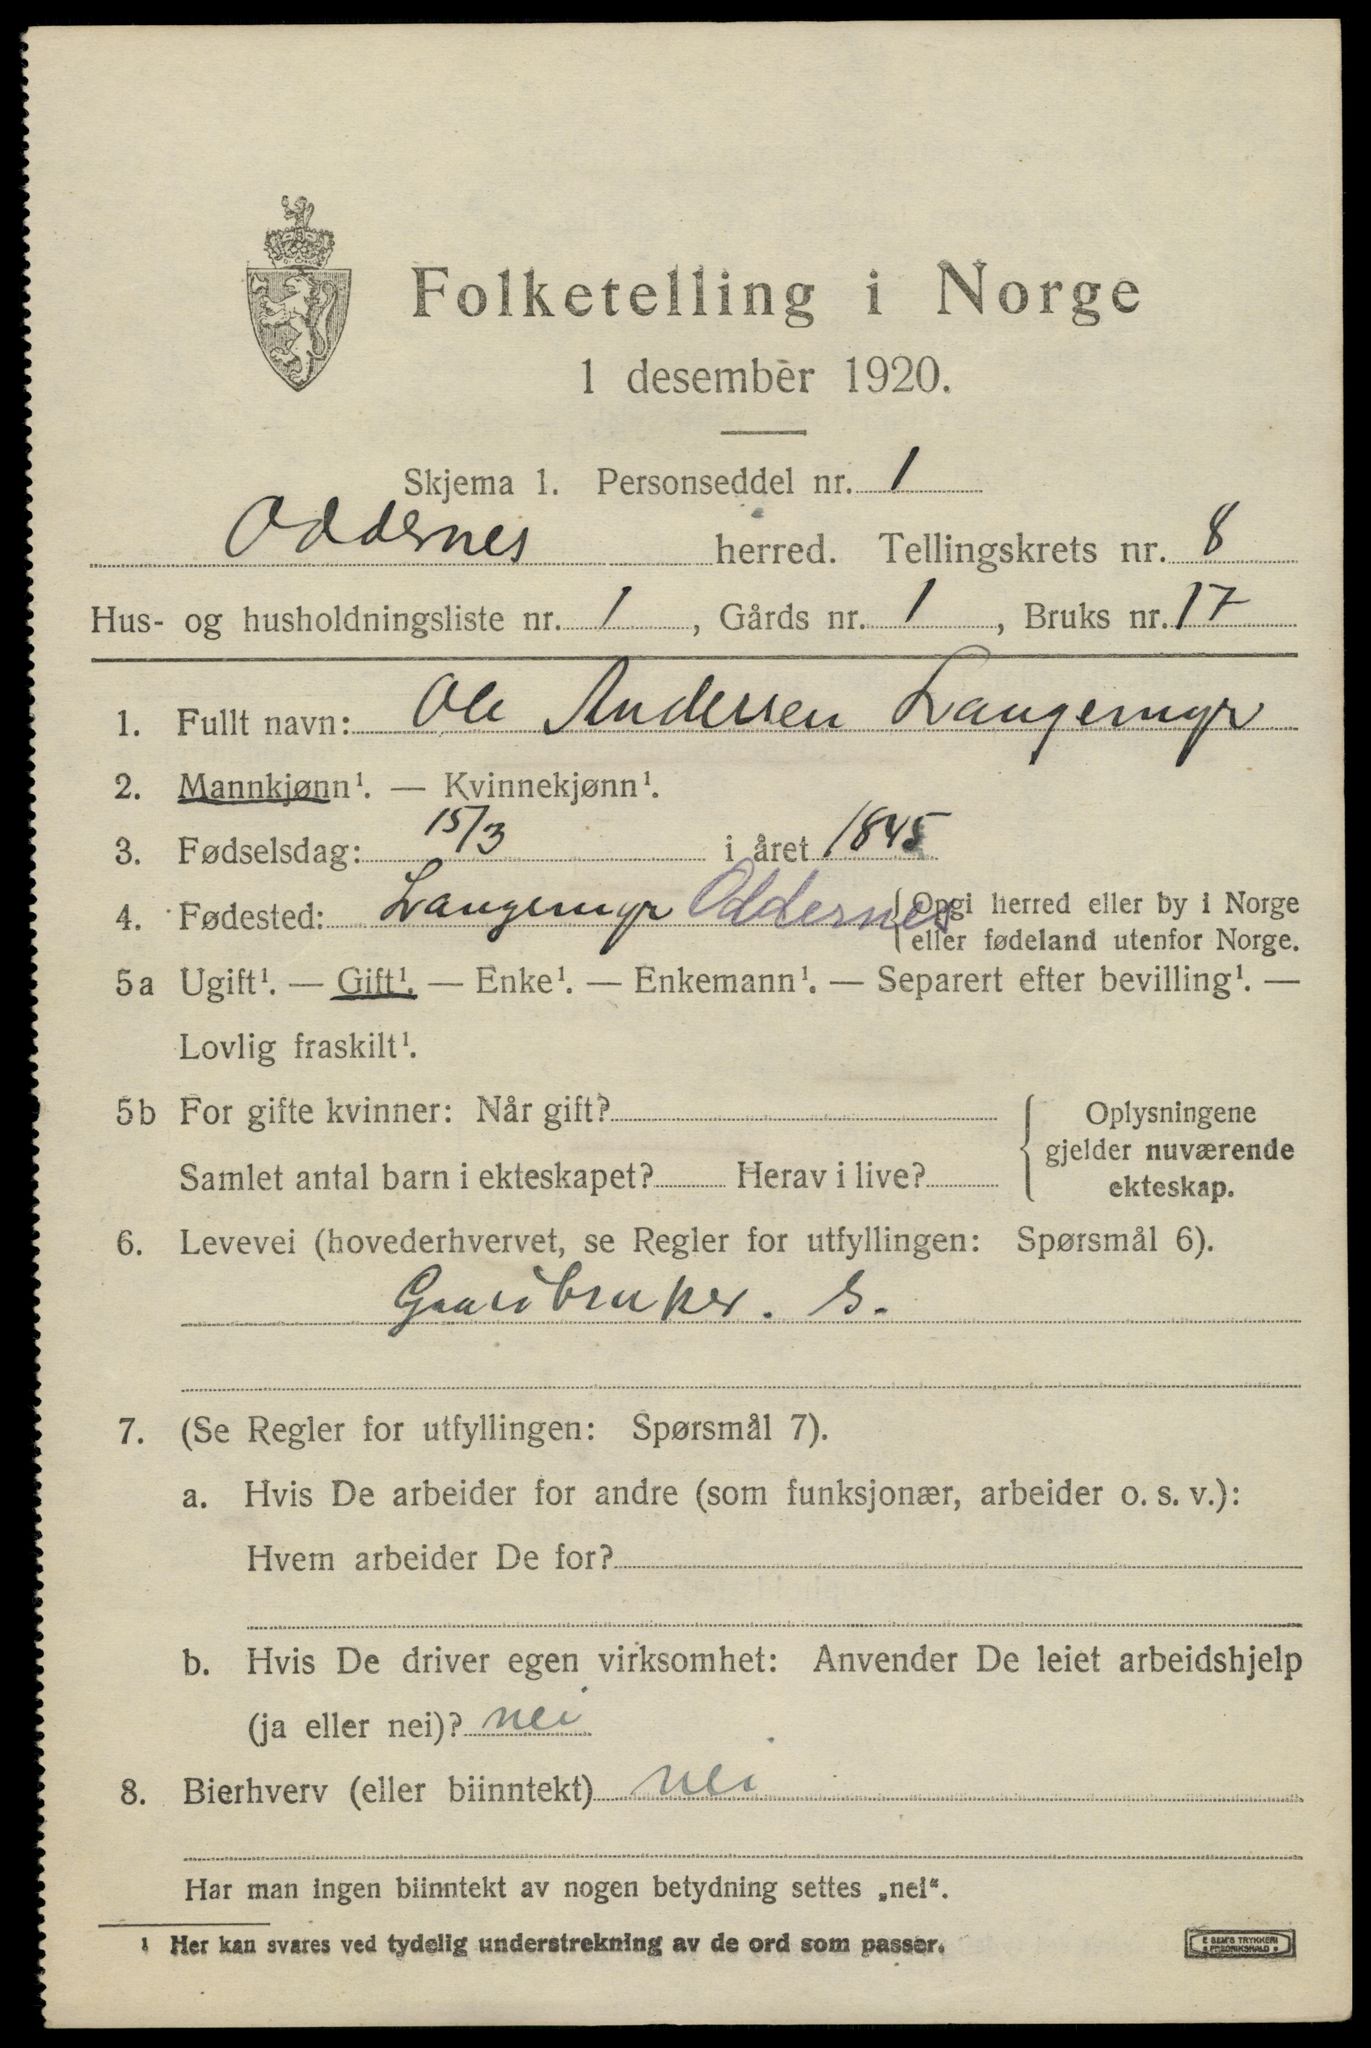 Folketelling i Norge
1 desember 1920.
Skjema 1. Personseddel nr. 1
Oddernes herred. Tellingskrets nr. 8
Hus- og husholdningsliste nr. 1, Gårds nr. 1, Bruks nr. 17
1. Fullt navn: Ole Andersen Langemyr
2. Mannkjønn¹. — Kvinnekjønn¹.
3. Fødselsdag: 15/3 i året 1845
4. Fødested: Langemyr Oddernes {Opgi herred eller by i Norge
eller fødeland utenfor Norge.
5a Ugift¹. — Gift¹. — Enke¹. — Enkemann¹. — Separert efter bevilling¹. —
Lovlig fraskilt¹.
5b For gifte kvinner: Når gift?
Samlet antal barn i ekteskapet? Herav i live?
{ Oplysningene
gjelder nuværende
ekteskap.
6. Levevei (hovederhvervet, se Regler for utfyllingen: Spørsmål 6).
Gaardbruker. S.
7. (Se Regler for utfyllingen: Spørsmål 7).
a. Hvis De arbeider for andre (som funksjonær, arbeider o. s. v.):
Hvem arbeider De for?
b. Hvis De driver egen virksomhet: Anvender De leiet arbeidshjelp
(ja eller nei)? nei
8. Bierhverv (eller biinntekt) nei
Har man ingen biinntekt av nogen betydning settes „nei“.
¹ Her kan svares ved tydelig understrekning av de ord som passer.
E SEM'S TRYKKERI
FREDRIKSHALD